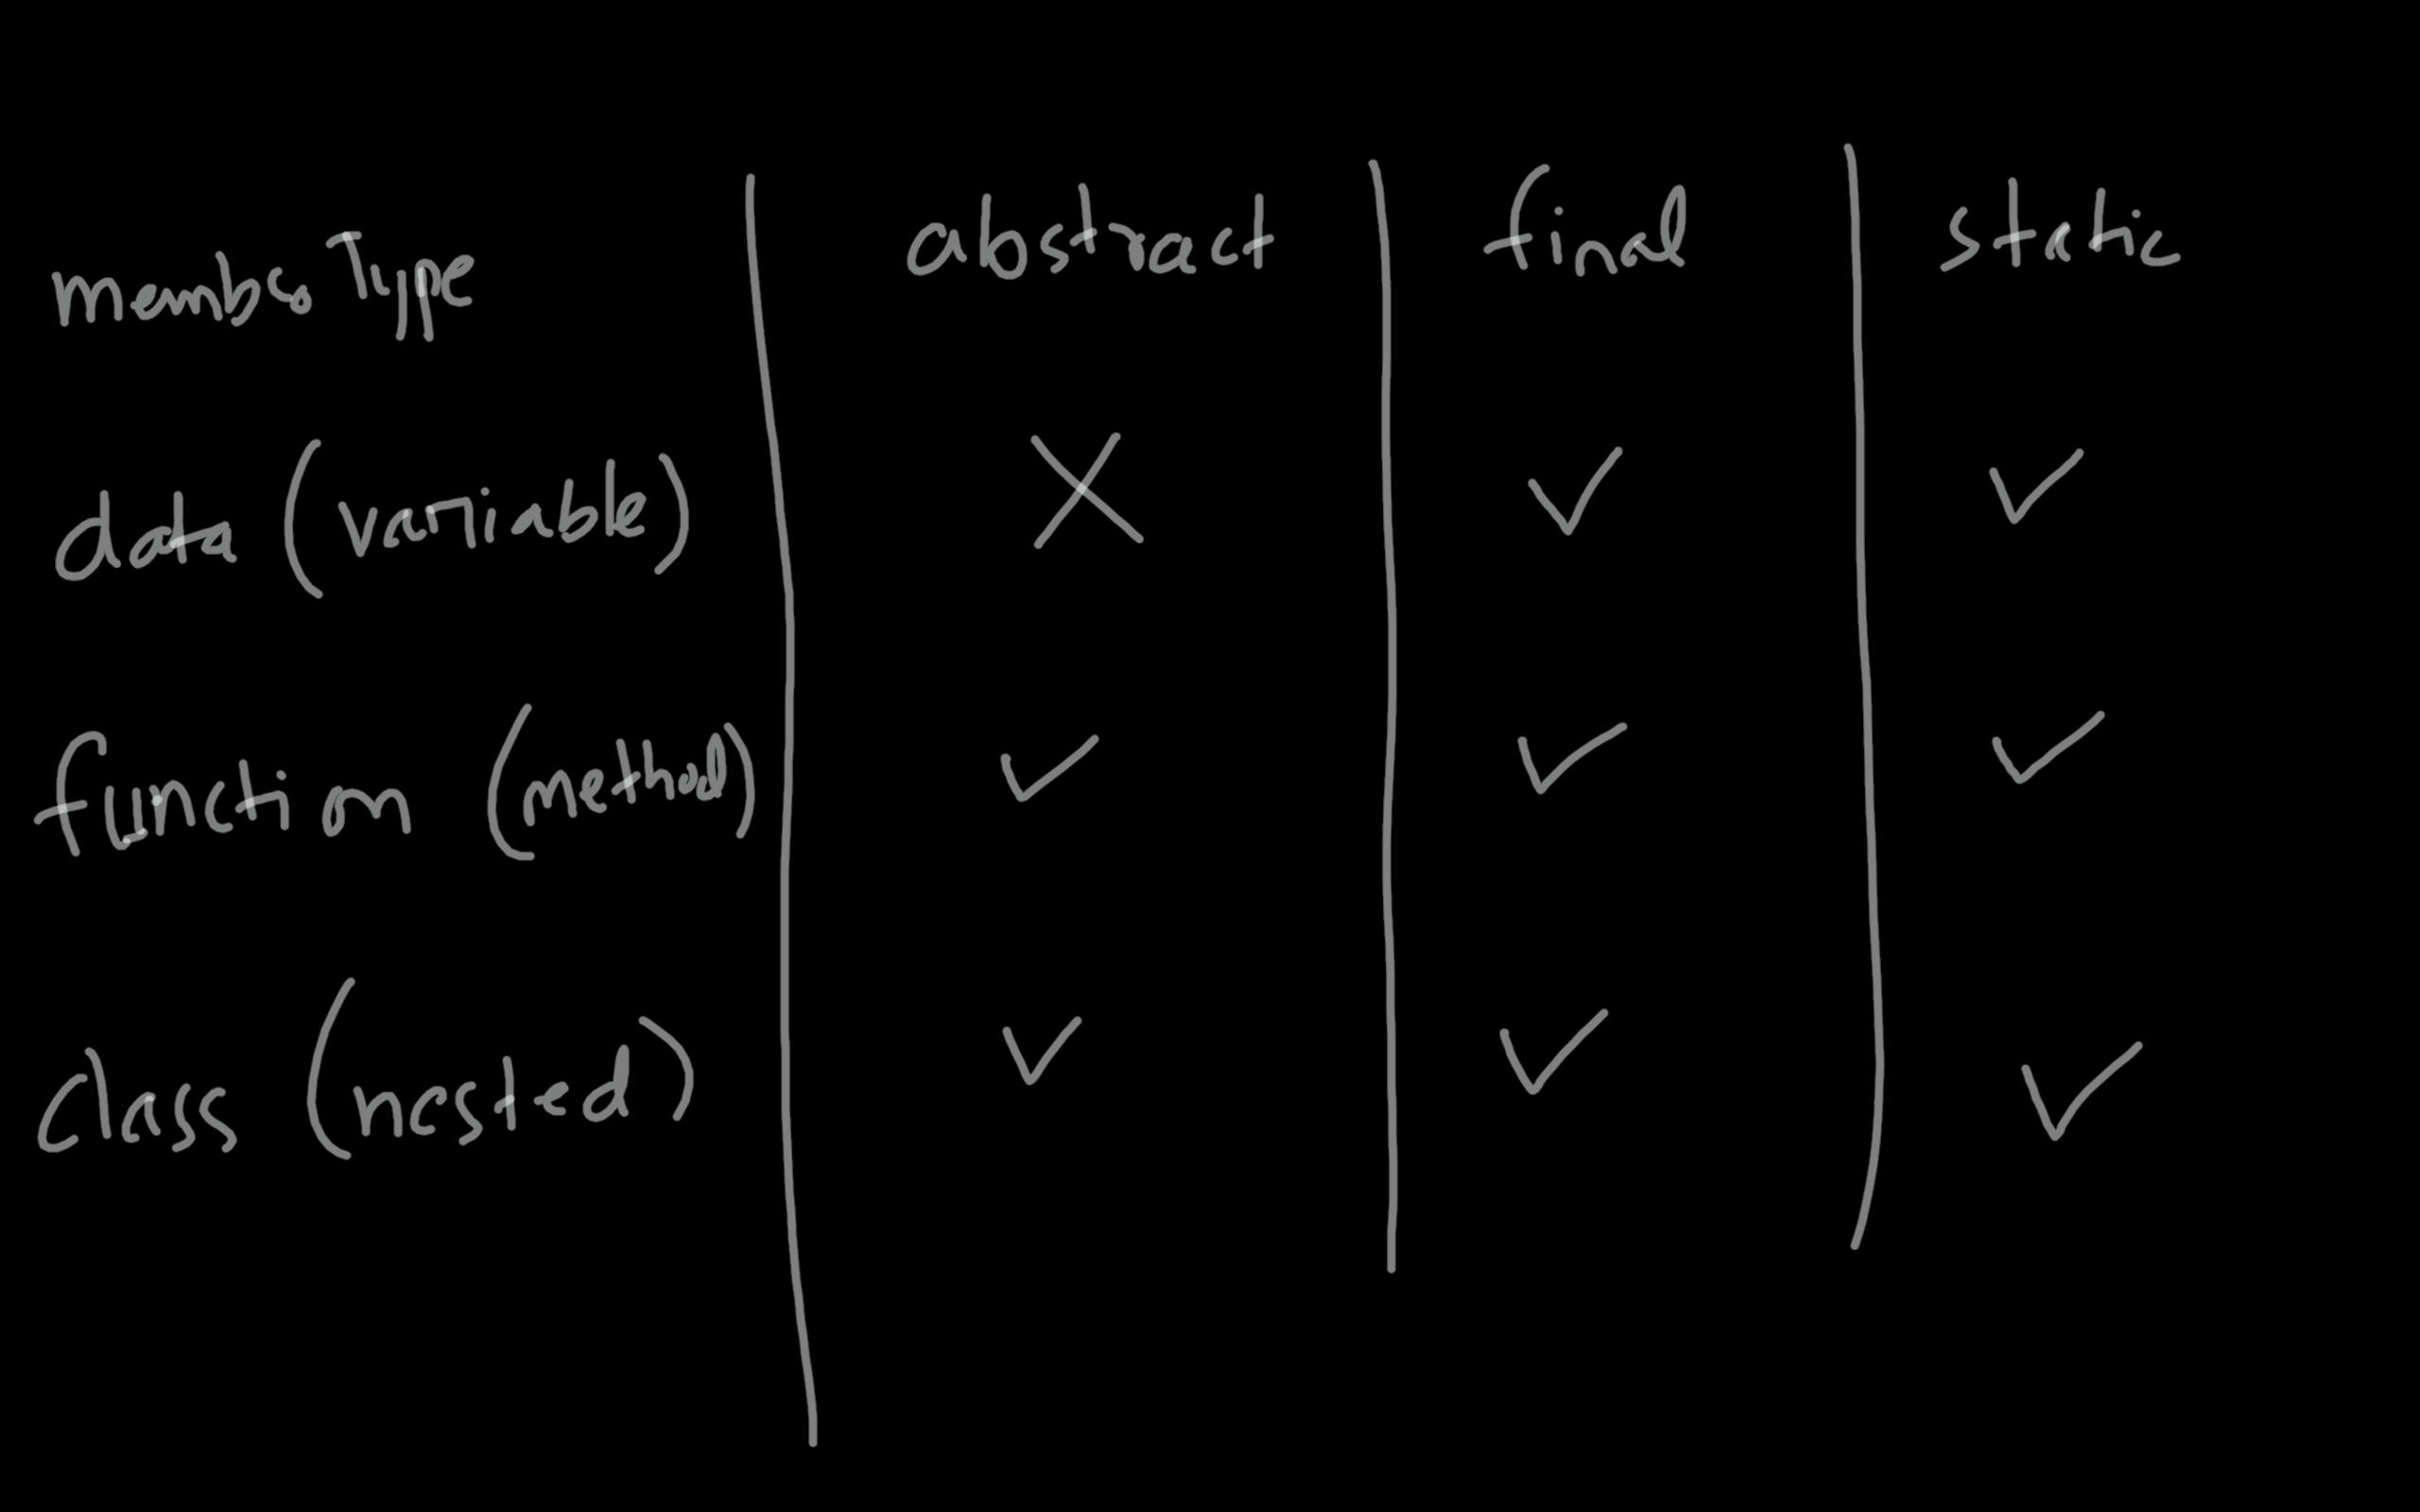 member Type abstract final static
data (variable) X ✓ ✓
function (method) ✓ ✓ ✓
class (nested) ✓ ✓ ✓